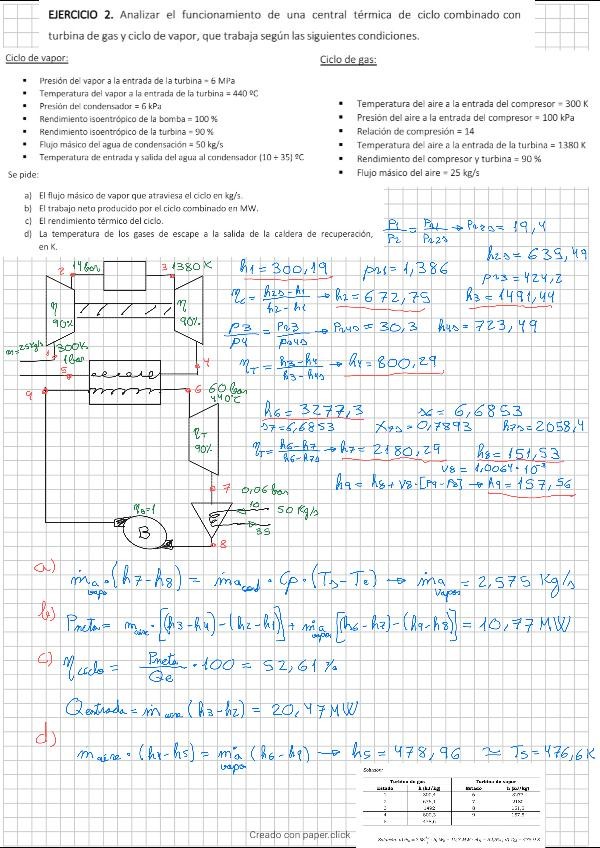 EJERCICIO 2. Analizar el funcionamiento de una central térmica de ciclo combinado con
turbina de gas y ciclo de vapor, que trabaja según las siguientes condiciones.
Ciclo de vapor:
▪ Presión del vapor a la entrada de la turbina = 6 MPa
▪ Temperatura del vapor a la entrada de la turbina = 440 ºC
▪ Presión del condensador = 6 kPa
▪ Rendimiento isoentrópico de la bomba = 100 %
▪ Rendimiento isoentrópico de la turbina = 90 %
▪ Flujo másico del agua de condensación = 50 kg/s
▪ Temperatura de entrada y salida del agua al condensador (10 ÷ 35) ºC
Ciclo de gas:
▪ Temperatura del aire a la entrada del compresor = 300 K
▪ Presión del aire a la entrada del compresor = 100 kPa
▪ Relación de compresión = 14
▪ Temperatura del aire a la entrada de la turbina = 1380 K
▪ Rendimiento del compresor y turbina = 90 %
▪ Flujo másico del aire = 25 kg/s
Se pide:
a) El flujo másico de vapor que atraviesa el ciclo en kg/s.
b) El trabajo neto producido por el ciclo combinado en MW.
c) El rendimiento térmico del ciclo.
d) La temperatura de los gases de escape a la salida de la caldera de recuperación,
en K.
P1/P2 = Pr1/Pr2s → Pr2s = 19,4
h2s = 635,49
h1 = 300,19 pr1 = 1,386
pr3 = 424,2
ηc = h2s-h1/h2-h1 → h2 = 672,75 h3 = 1491,44
P3/P4 = Pr3/Pr4s → Pr4s = 30,3 h4s = 723,49
ηT = h3-h4/h3-h4s → h4 = 800,29
h6 = 3277,3 s6 = 6,6853
s7 = 6,6853 x7s = 0,7893 h7s = 2058,4
ηT = h6-h7/h6-h7s → h7 = 2180,29 h8 = 151,53
v8 = 1,0064 · 10⁻³
h9 = h8 + v8 · [P9 - P8] → h9 = 157,56
2 14 bar 3 1380 K
η 90% η 90%
m = 25 kg/s 1 300K
1 bar
5 4
9 6 60 bar
440ºC
ηT
90%
7 0,06 bar
ηB=1 10 50 Kg/s
B 35
8
a) ṁa vapor · (h7 - h8) = ṁa cond · Cp · (Ts - Te) → ṁa vapor = 2,575 Kg/s
b) Pneta = ṁ aire · [(h3-h4) - (h2-h1)] + ṁa vapor [(h6-h7) - (h9-h8)] = 10,77 MW
c) η ciclo = Pneta/Qe · 100 = 52,61 %
Qentrada = ṁ aire (h3 - h2) = 20,47 MW
d)
ṁ aire · (h4 - h5) = ṁa vapor (h6 - h9) → h5 = 478,96 ≃ T5 = 476,6 K
Solución:
Turbina de gas Turbina de vapor
Estado h (kJ/kg) Estado h (kJ/kg)
Creado con paper.click